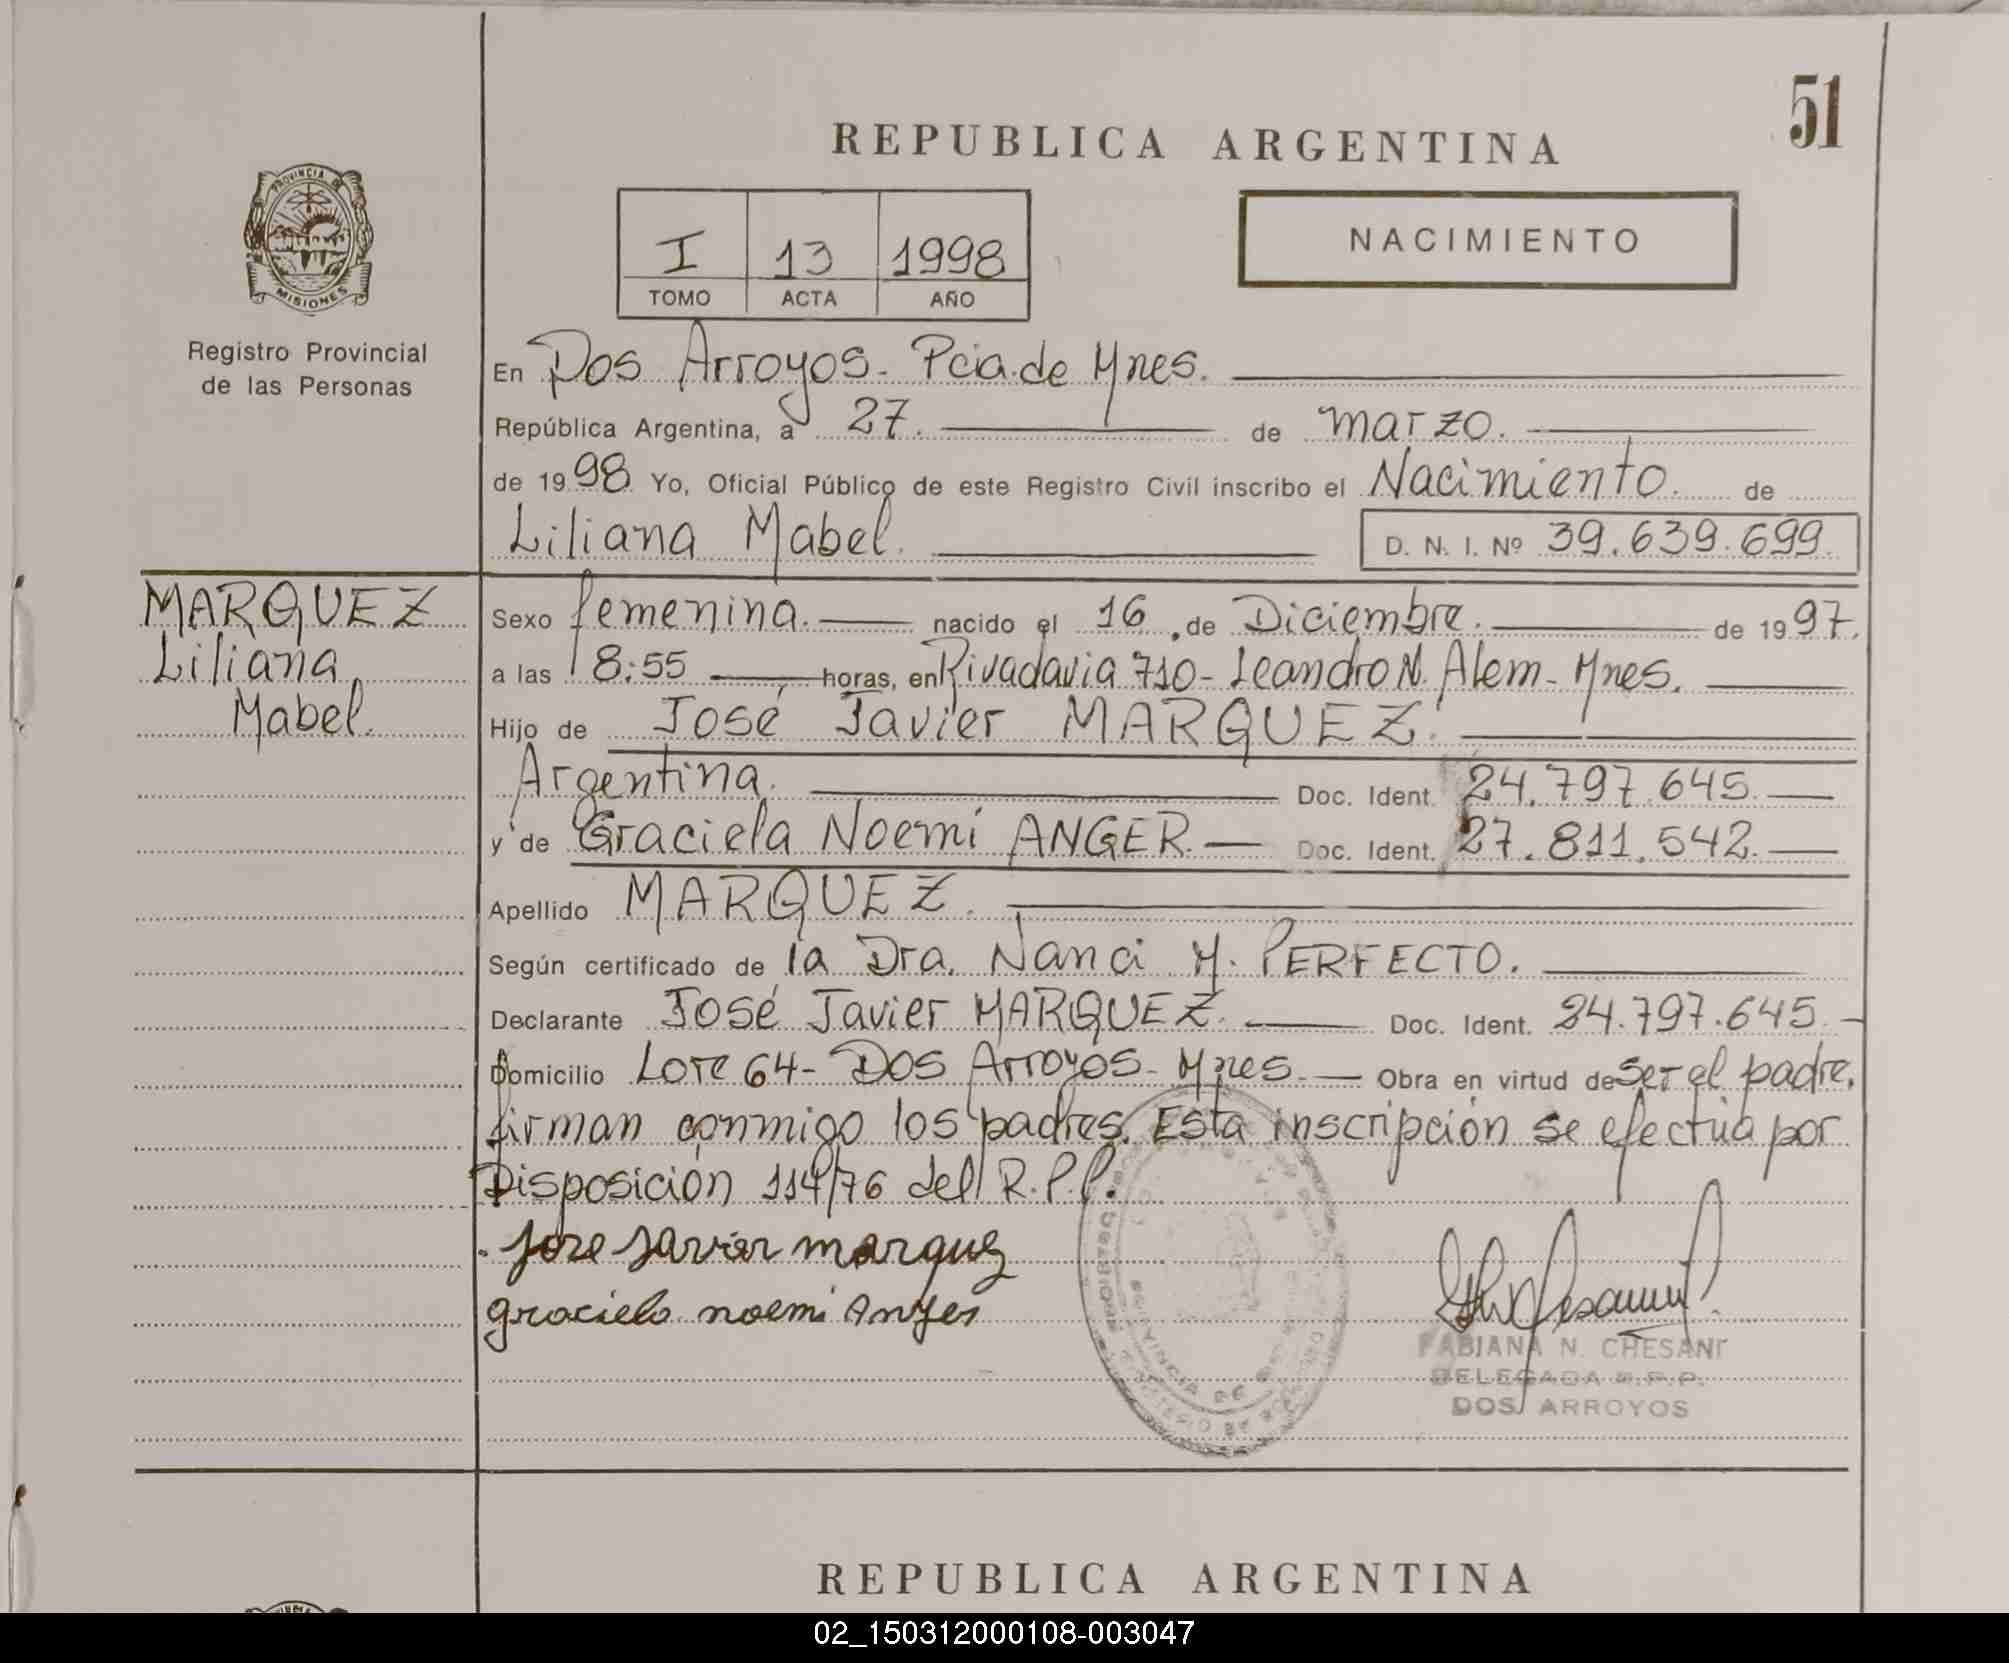 51
REPUBLICA ARGENTINA
PROVINCIA DE
MISIONES
Registro Provincial
de las Personas
I 13 1998
TOMO ACTA AÑO
NACIMIENTO
En Dos Arroyos - Pcia. de Mnes.
República Argentina, a 27. de marzo.
de 1998 Yo, Oficial Público de este Registro Civil inscribo el Nacimiento. de
Liliana Mabel. D. N. I. Nº 39.639.699.
MARQUEZ
Liliana
Mabel.
Sexo femenina. nacido el 16 de Diciembre. de 1997.
a las 18:55 horas, en Rivadavia 710 - Leandro N. Alem - Mnes.
Hijo de José Javier MARQUEZ.
Argentina. Doc. Ident. 24.797.645.
y de Graciela Noemí ANGER. Doc. Ident. 27.811.542.
Apellido MARQUEZ.
Según certificado de la Dra. Nanci M. PERFECTO.
Declarante José Javier MARQUEZ. Doc. Ident. 24.797.645.
Domicilio Lote 64 - Dos Arroyos - Mnes. Obra en virtud de ser el padre,
firman conmigo los padres. Esta inscripción se efectúa por
Disposición 114/76 del R.P.P.
Jose Javier marquez
graciela noemi Anger
FABIANA N. CHESANI
DELEGADA R.P.P.
DOS ARROYOS
REPUBLICA ARGENTINA
02_150312000108-003047